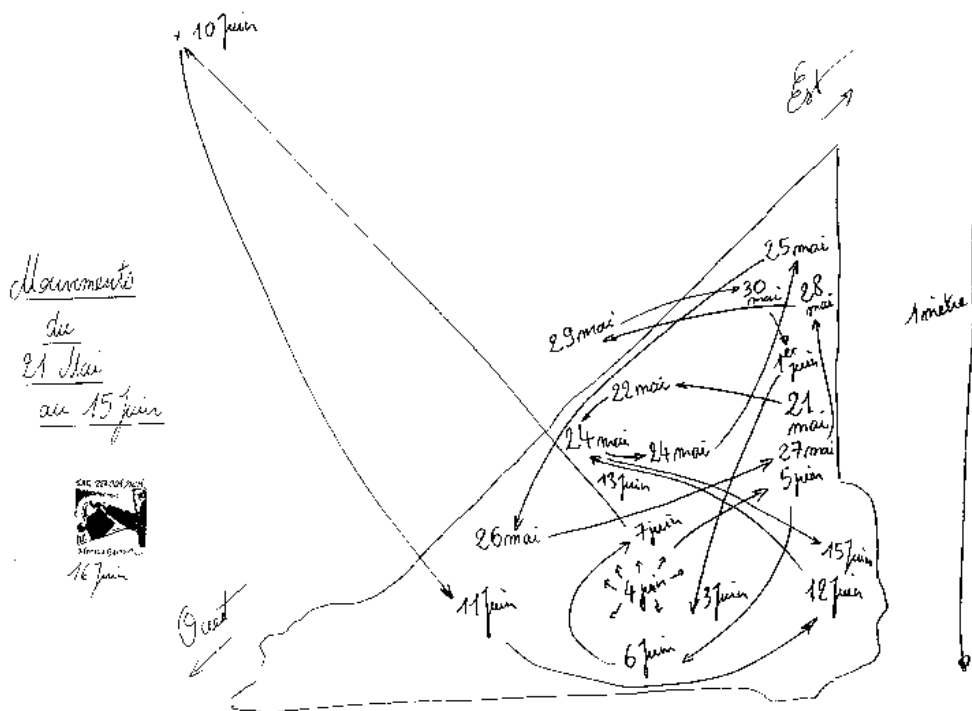 + 10 Juin
Est
Mouvements
du
21 Mai
au 15 Juin
16 Juin
Ouest
1 mètre
25 mai
30
mai
28
mai
29 mai
1er
juin
22 mai
21
mai
24 mai
24 mai
27 mai
5 juin
13 Juin
26 mai
7 juin
15 Juin
4 juin
3 Juin
12 Juin
11 Juin
6 Juin